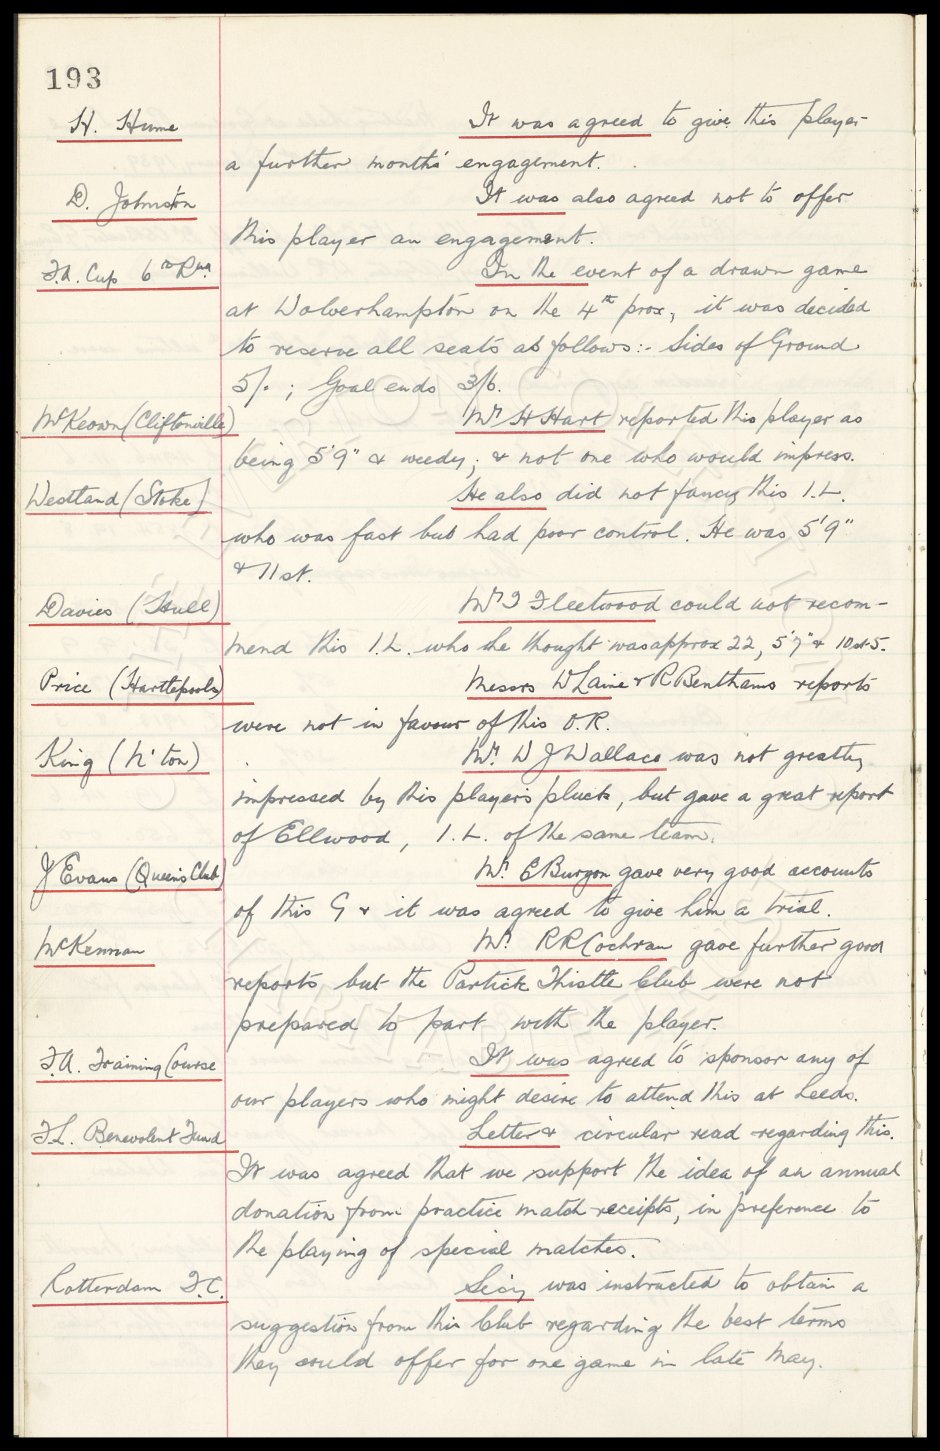 193
H. Hume It was agreed to give this player
a further months' engagement.
D. Johnston It was also agreed not to offer
this player an engagement.
F.A. Cup 6th Rnd In the event of a drawn game
at Wolverhampton on the 4th prox, it was decided
to reserve all seats as follows:- Sides of Ground
5/- ; Goal ends 3/6.
McKeown (Cliftonville) Mr H Hart reported this player as
being 5'9" & weedy; & not one who would impress.
Westland (Stoke) He also did not fancy this I.L.
who was fast but had poor control. He was 5'9"
& 11 st.
Davies (Hull) Mr T Fleetwood could not recom-
mend this I.L. who he thought was approx 22, 5'7" & 10st 5.
Price (Hartlepools) Messrs W Laine & R Benthams reports
were not in favour of this O.R.
King (N'ton) Mr. W J Wallace was not greatly
impressed by this player's pluck, but gave a great report
of Ellwood, I.L. of the same team.
J Evans (Queen's Club) Mr. E Burgon gave very good accounts
of this G & it was agreed to give him a trial.
McKennan Mr. R R Cochran gave further good
reports, but the Partick Thistle Club were not
prepared to part with the player.
F.A. Training Course It was agreed to sponsor any of
our players who might desire to attend this at Leeds.
F.L. Benevolent Fund Letter & circular read regarding this.
It was agreed that we support the idea of an annual
donation from practice match receipts, in preference to
the playing of special matches.
Rotterdam F.C. Secy was instructed to obtain a
suggestion from this Club regarding the best terms
they could offer for one game in late May.